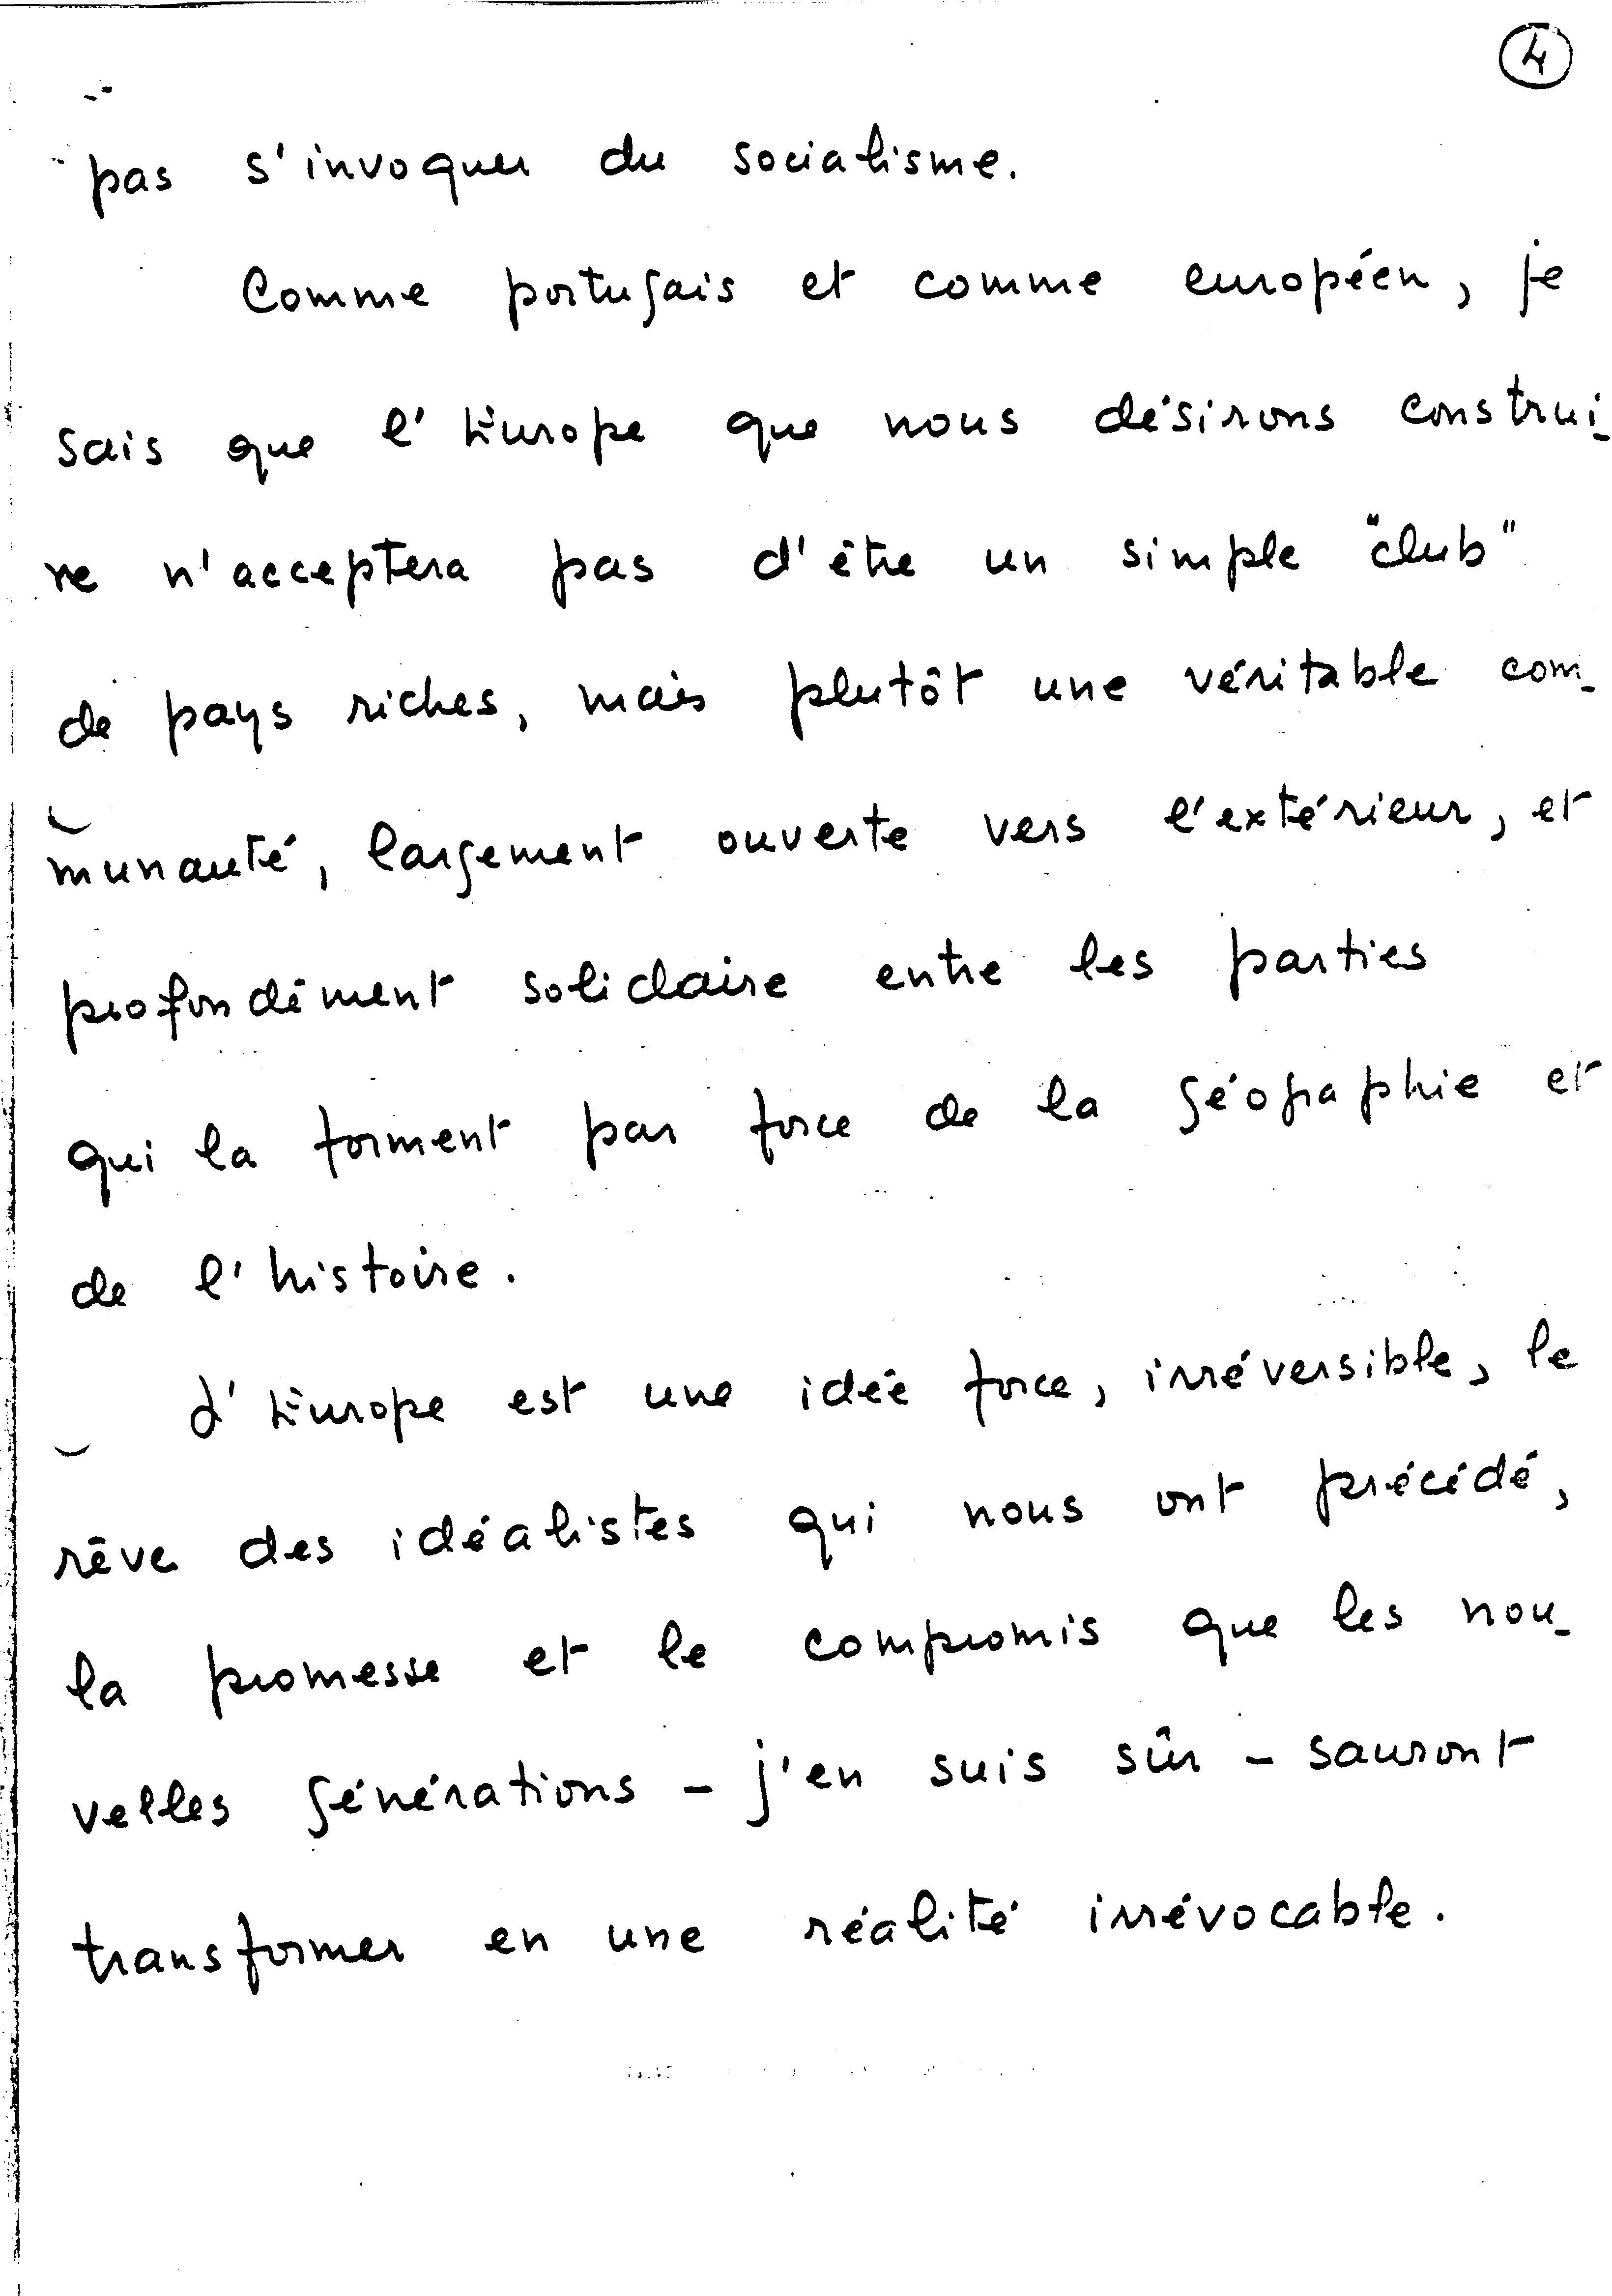 4
pas s'invoquer du socialisme.
Comme portugais et comme européen, je
sais que l'Europe que nous désirons construi-
re n'acceptera pas d'être un simple "club"
de pays riches, mais plutôt une véritable com-
munauté, largement ouverte vers l'extérieur, et
profondément solidaire entre les parties
qui la forment par force de la géographie et
de l'histoire.
L'Europe est une idée force, irréversible, le
rêve des idéalistes qui nous ont précédé,
la promesse et le compromis que les nou-
velles générations - j'en suis sûr - sauront
transformer en une réalité irrévocable.